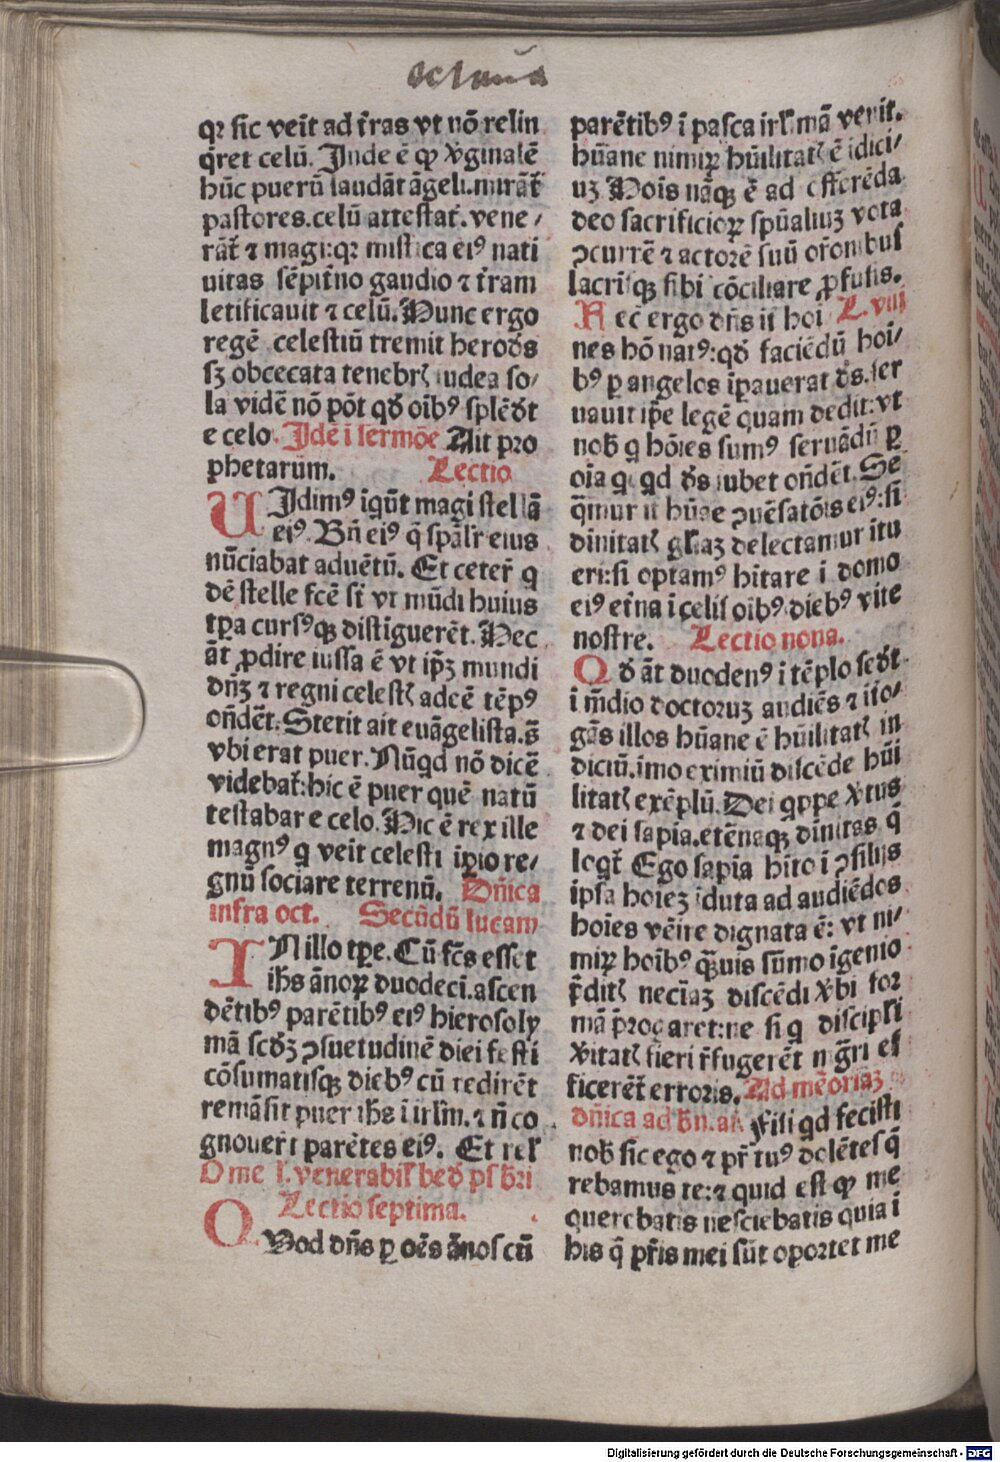 octaua
qꝛ sic veĩt ad t̃ras vt nõ relin
q̃ret celũ. Jnde ẽ ꝙ v̓ginalẽ
hũc puerũ laudãt ãgeli. mirãt᷑
pastores. celũ attestat᷑. vene⸗
rãt᷑ ⁊ magi: qꝛ mistica eiꝰ nati
uitas sẽpit̃no gaudio ⁊ t̃ram
letificauit ⁊ celũ. Nunc ergo
regẽ celestiũ tremit herodꝭs
sꝫ obcecata tenebrꝭ iudea so⸗
la vidẽ nõ põt qđ oĩbꝰ splẽđt
e celo. Jdẽ ĩ sermõe Ait pro
phetarũm. Lectio
UJdimꝰ ĩqũt magi stellã
eiꝰ. Bñ eiꝰ q̃ spãlr̃ eius
nũciabat aduẽtũ. Et ceter̃ q
dẽ stelle fcẽ st̃ vt mũdi huius
tꝑa cursꝰqꝫ distiguerẽt. Nec
ãt ꝓdire iussa ẽ vt ip̃ꝫ mundi
dñꝫ ⁊ regni celestꝭ adcẽ tẽpꝰ
oñdẽt. Stetit ait euãgelista. s̃
vbi erat puer. Nũqd nõ dicẽ
videbat᷑: hic ẽ puer quẽ natũ
testabar e celo. Hic ẽ rex ille
magnꝰ q veĩt celesti iꝑio re⸗
gnũ sociare terrenũ. Dñica
infra oct. Secũdũ lucam
IN illo tꝑe. Cũ fc̃s esset
ih̃s ãnoꝝ duodecĩ. ascen
dẽtibꝰ parẽtibꝰ eiꝰ hierosoly
mã scđꝫ ꝯsuetudinẽ diei festi
cõsumatisqꝫ diebꝰ cũ redirẽt
remãsit puer ih̃s ĩ irl̃m. ⁊ ñ co
gnouer̃t parẽtes eiꝰ. Et rel̃
Ome l. venerabil̃ beđ pſ bri
Lectio septima.
QUod dñs ꝑ oẽs ãnos cũ
parẽtibꝰ ĩ pasca irl̃mã venit.
hũane nimiꝝ hũilitatꝭ ẽ ĩdici⸗
uꝫ Hoĩs nãqꝫ ẽ ad offerẽda
deo sacrificioꝝ spũaliuꝫ vota
ꝯcurrẽ ⁊ actorẽ suũ or̃onibus
lacrĩsqꝫ sibi cõciliare ꝓfusis.
Hec ergo dñs ĩt hoĩ L. viij
nes hõ natꝰ: qđ faciẽdũ hoĩ⸗
bꝰ ꝑ angelos ĩpauerat ds. ser
uauit ip̃e legẽ quam dedit: vt
nob̃ q hõies sumꝰ seruãdũ ꝑ
oĩa qcqd ds iubet oñdẽt. Se
q̃mur it hũãe ꝯuẽsatõis eiꝰ: si
diuĩtatꝭ gl̃iaꝫ delectamur ĩtu
eri: si optamꝰ hĩtare ĩ domo
eiꝰ et̃na ĩ celis oĩbꝰ diebꝰ vite
nostre. Lectio nona.
Qđ ãt duodenꝰ ĩ tẽplo seđt
ĩ m̃dio doctoruꝫ audiẽs ⁊ ĩto⸗
gãs illos hũane ẽ hũilitatꝭ in
diciũ. ĩmo eximiũ discẽde hũi
litatꝭ exẽplũ. Dei qppe x̃tus
⁊ dei sapĩa. etẽnaqꝫ diuĩtas q̃
loqt᷑ Ego sapĩa hĩto ĩ ꝯsilijs
ipsa hoĩeꝫ ĩduta ad audiẽdos
hoĩes vẽire dignata ẽ: vt ni⸗
miꝝ hoĩbꝰ qᷓuis sũmo ĩgenio
p̃ditꝭ necĩaꝫ discẽdi v̓bi for
mã p̃rogaret: ne si q discipl̃i
v̓itatꝭ fieri r̃fugerẽt mg̃ri ef
ficerẽt᷑ erroris. Ad mẽoriaꝫ
dñica ad bñ. añ. Fili qd fecisti
nob̃ sic ego ⁊ pr̃ tuꝰ dolẽtes q̃
rebamus te: ⁊ quid est ꝙ me
querebatis nesciebatis quia ĩ
his q̃ pr̃is mei sũt oportet me
Digitalisierung gefördert durch die Deutsche Forschungsgemeinschaft - DFG